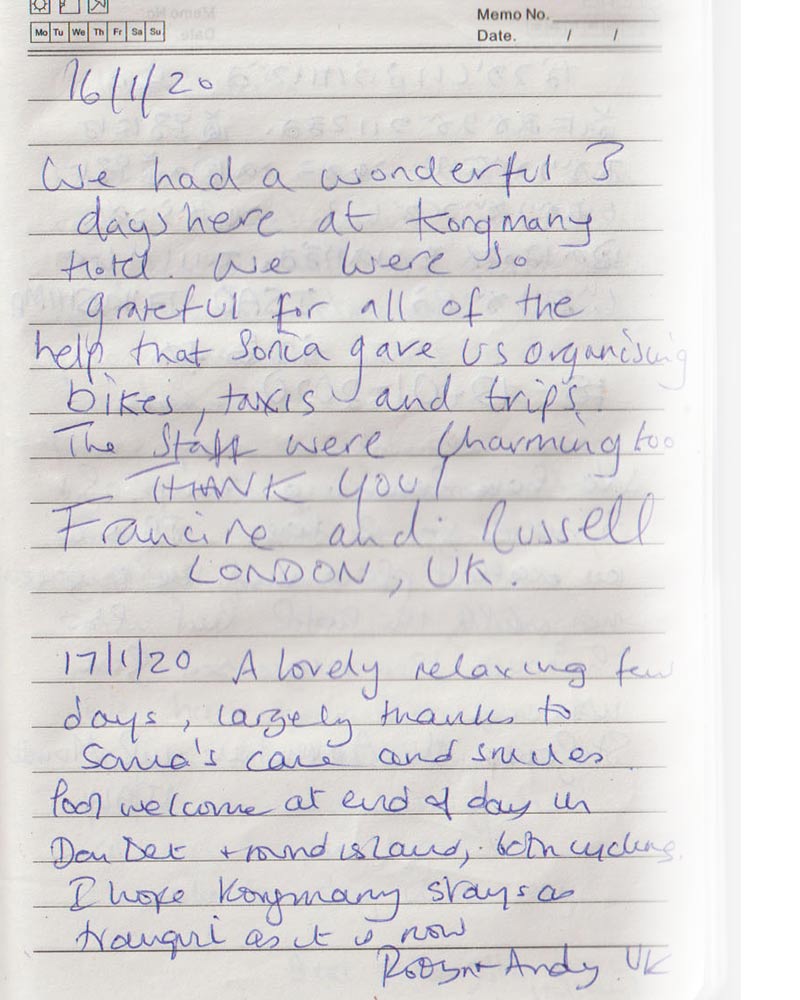 Mo Tu We Th Fr Sa Su
Memo No.
Date. / /
16/1/20
We had a wonderful 3
days here at Kongmany
Hotel. We were so
grateful for all of the
help that Sonia gave us organising
bikes, taxis and trips.
The Staff were charming too
THANK YOU!
Francine and Russell
LONDON, UK.
17/1/20 A lovely relaxing few
days, largely thanks to
Sonia's care and smiles.
Pool welcome at end of day in
Don Det + round island, both cycling.
I hope Kongmany stays as
tranquil as it is now
Robyn + Andy UK